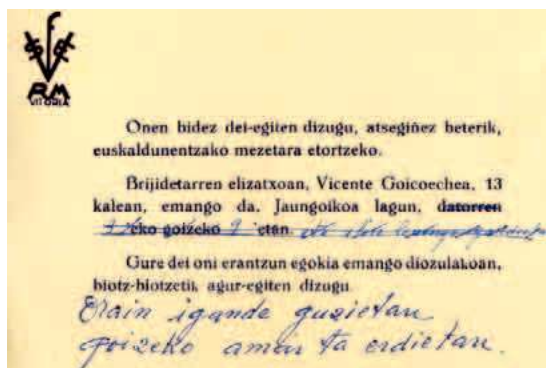 RM
VITORIA
Onen bidez dei-egiten dizugu, atsegiñez beterik,
euskaldunentzako mezetara etortzeko.
Brijidetarren elizatxoan, Vicente Goicoechea, 13
kalean, emango da, Jaungoikoa lagun, datorren
'eko goizeko 9 'etan
Gure dei oni erantzun egokia emango diozulakoan,
biotz-biotzetik agur-egiten dizugu
Orain igande guzietan
goizeko amar ta erdietan.